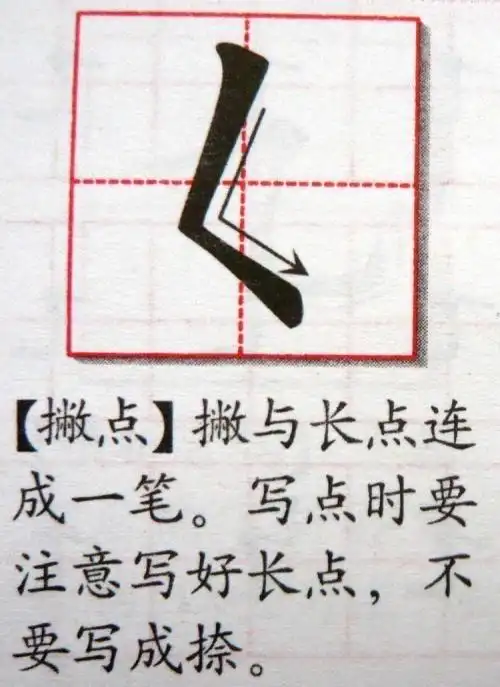 【撇点】撇与长点连
成一笔。写点时要
注意写好长点，不
要写成捺。